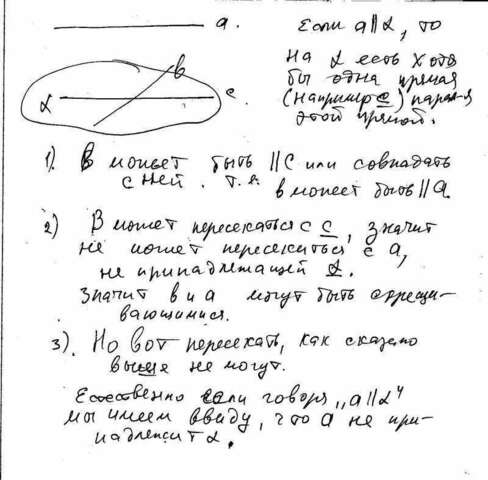 a.
Если a∥α, то
на α есть хотя
бы одна прямая
(например c) парал-я
этой прямой.
в
α
c.
1). В может быть ∥ C или совпадать
с ней. т.е. в может быть ∥ a.
2) В может пересекаться с c, значит
не может пересекаться с a,
не принадлежащей α.
Значит в и a могут быть скрещи-
вающимися.
3). Но вот пересекать, как сказано
выше не могут.
Естественно если говоря „a∥α"
мы имеем ввиду, что a не при-
надлежит α.